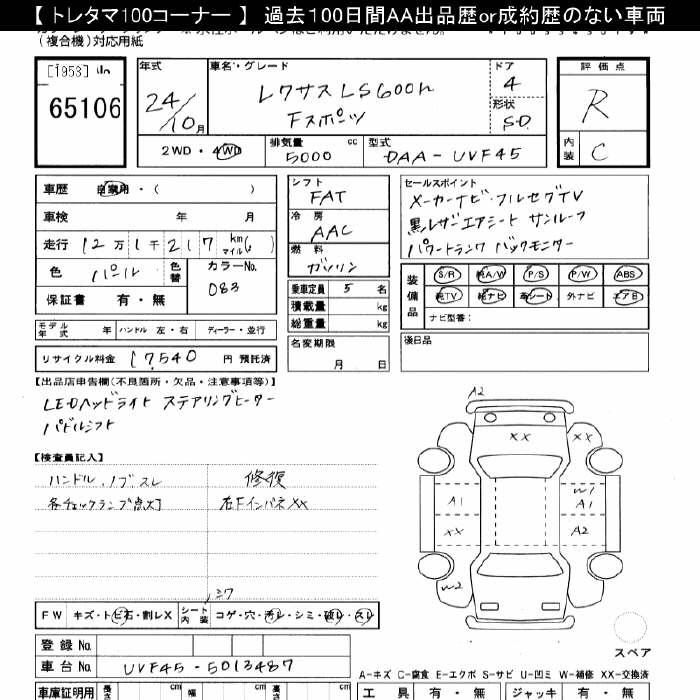 【トレタマ100コーナー】 過去100日間AA出品歴or成約歴のない車両
(複合機)対応用紙
[1953]
65106
年式
24/10月
車名・グレード
レクサスLS600h
Fスポーツ
ドア
4
形状
SD
評価点
R
内装
C
2WD・4WD
排気量
5000 cc
型式
DAA-UVF45
車歴 自家用・( )
車検 年 月
走行 12万1千217 km マイル( )
色 パール 色替
カラーNo.
083
保証書 有・無
シフト
FAT
冷房
AAC
燃料
ガソリン
乗車定員 5 名
積載量 kg
総重量 kg
セールスポイント
メーカーナビ・フルセグTV
黒レザーエアシート サンルーフ
パワートランク バックモニター
装備品
S/R 純A/W P/S P/W ABS
純TV 純ナビ 革シート 外ナビ エアB
ナビ型番:
モデル年式 年 ハンドル 左・右 ディーラー・並行
名変期限
月 日
後日品
リサイクル料金 17540 円 預託済
【出品店申告欄(不良箇所・欠品・注意事項等)】
LEDヘッドライト ステアリングヒーター
パドルシフト
【検査員記入】
ハンドル、ノブスレ 修復
各チェックランプ点灯 右FインパネXX
A2
XX
XX
A1
W1
A1
XX
A2
W2
シワ
FW キズ・トビ石・割レX シート内装 コゲ・穴・汚レ・シミ・破レ・スレ
スペア
登録No.
車台No. UVF45-5013487
A-キズ C-腐食 E-エクボ S-サビ U-凹ミ W-補修 XX-交換済
車庫証明用 長さ cm 幅 cm 高さ cm
工具 有・無 ジャッキ 有・無